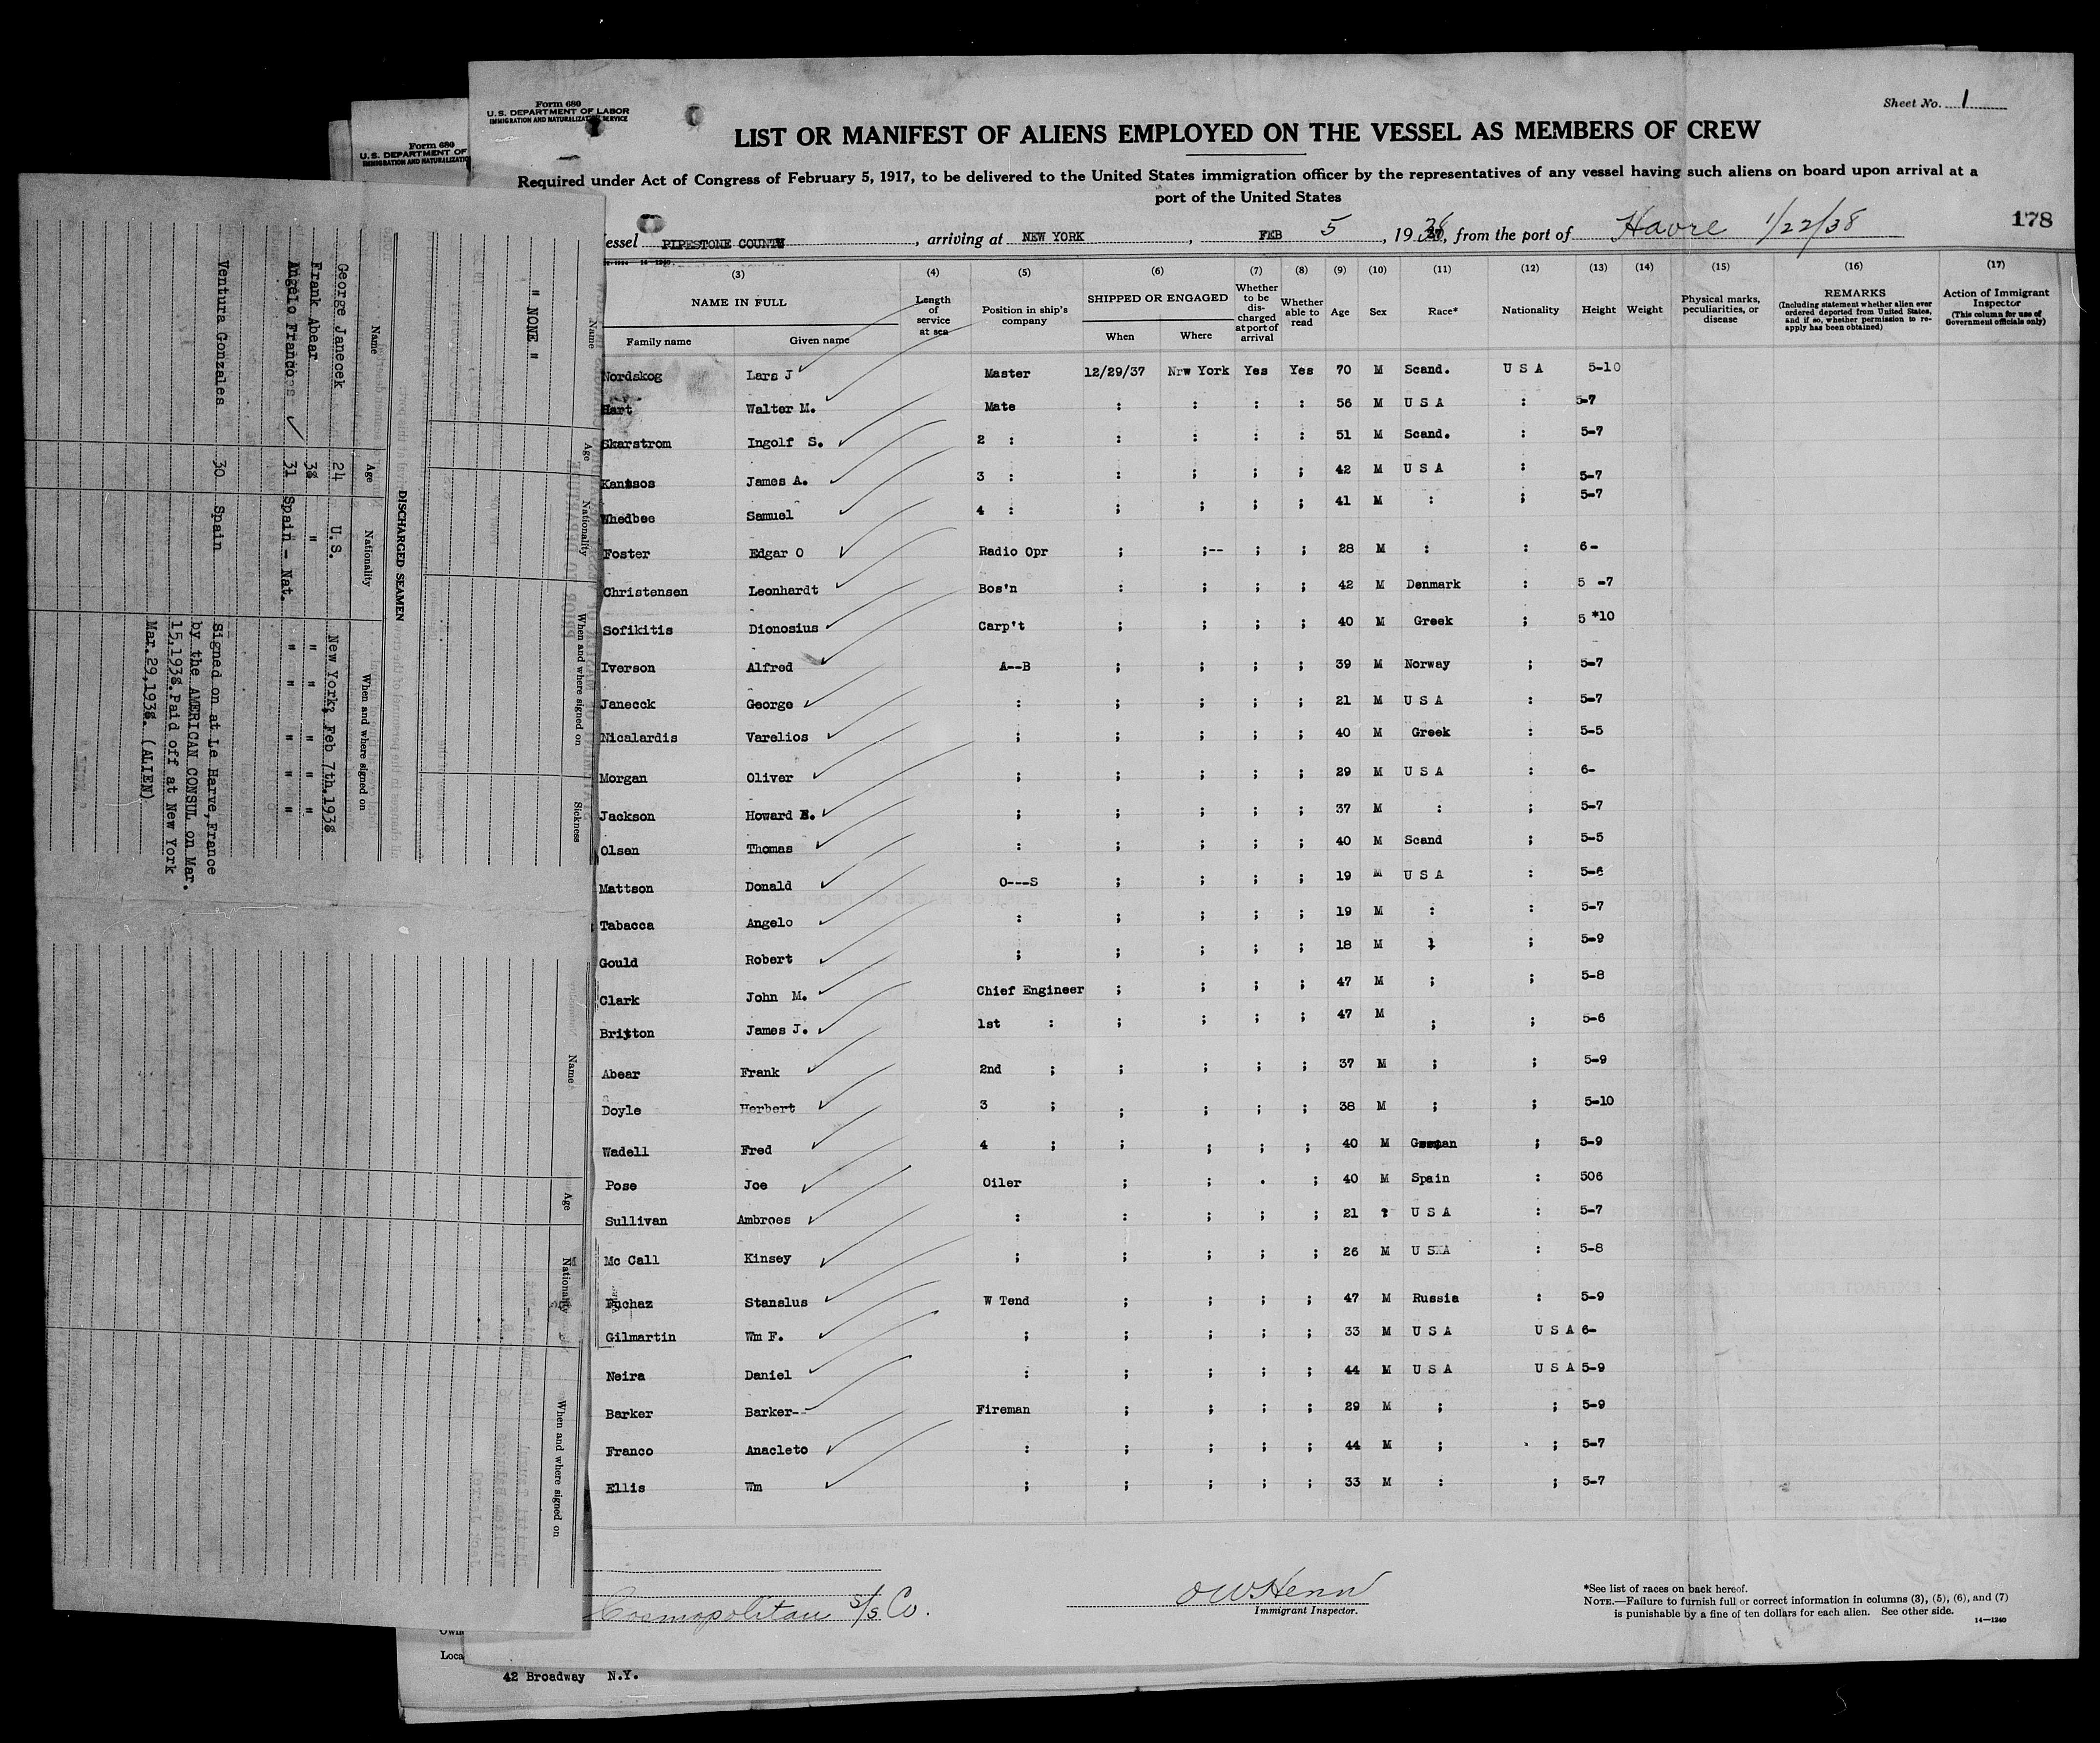 Form 680
U.S. DEPARTMENT OF LABOR
IMMIGRATION AND NATURALIZATION SERVICE
Sheet No. 1
LIST OR MANIFEST OF ALIENS EMPLOYED ON THE VESSEL AS MEMBERS OF CREW
Required under Act of Congress of February 5, 1917, to be delivered to the United States immigration officer by the representatives of any vessel having such aliens on board upon arrival at a
port of the United States
178
essel PIPESTONE COUNTY, arriving at NEW YORK, FEB 5, 1938, from the port of Havre 1/22/38
(3) (4) (5) (6) (7) (8) (9) (10) (11) (12) (13) (14) (15) (16) (17)
NAME IN FULL Length of service at sea Position in ship's company SHIPPED OR ENGAGED Whether to be discharged at port of arrival Whether able to read Age Sex Race* Nationality Height Weight Physical marks, peculiarities, or disease REMARKS (Including statement whether alien ever ordered deported from United States, and if so, whether permission to reapply has been obtained) Action of Immigrant Inspector (This column for use of Government officials only)
Family name Given name When Where
Nordskog Lars J Master 12/29/37 Nrw York Yes Yes 70 M Scand. U S A 5-10
Hart Walter M. Mate : : : : 56 M U S A : 5-7
Skarstrom Ingolf S. 2 : : : : : 51 M Scand. : 5-7
Kantsos James A. 3 : : ; ; ; 42 M U S A : 5-7
Whedbee Samuel 4 : ; ; ; ; 41 M : ; 5-7
Foster Edgar O Radio Opr ; ;-- ; ; 28 M : : 6-
Christensen Leonhardt Bos'n : ; ; ; 42 M Denmark : 5 -7
Sofikitis Dionosius Carp't ; ; ; ; 40 M Greek ; 5 *10
Iverson Alfred A--B ; ; ; ; 39 M Norway ; 5-7
Janecck George : ; ; ; ; 21 M U S A : 5-7
Nicalardis Varelios ; ; ; ; ; 40 M Greek : 5-5
Morgan Oliver ; ; ; ; ; 29 M U S A : 6-
Jackson Howard E. ; ; ; ; ; 37 M : ; 5-7
Olsen Thomas : ; ; ; ; 40 M Scand ; 5-5
Mattson Donald O---S ; ; ; ; 19 M U S A : 5-6
Tabacca Angelo : ; ; ; ; 19 M : : 5-7
Gould Robert ; ; ; ; ; 18 M ; 5-9
Clark John M. Chief Engineer ; ; ; ; 47 M ; ; 5-8
Britton James J. 1st : ; ; ; ; 47 M ; ; 5-6
Abear Frank 2nd ; ; ; ; ; 37 M ; ; 5-9
Doyle Herbert 3 ; ; ; ; ; 38 M ; ; 5-10
Wadell Fred 4 ; ; ; ; ; 40 M German ; 5-9
Pose Joe Oiler ; ; . ; 40 M Spain : 506
Sullivan Ambroes : : ; ; ; 21 ? U S A : 5-7
Mc Call Kinsey ; ; ; ; ; 26 M U S A : 5-8
Puchaz Stanslus W Tend ; ; ; ; 47 M Russia : 5-9
Gilmartin Wm F. ; ; ; ; ; 33 M U S A U S A 6-
Neira Daniel : ; ; ; ; 44 M U S A U S A 5-9
Barker Barker-- Fireman ; ; ; ; 29 M ; ; 5-9
Franco Anacleto : ; ; ; ; 44 M ; ; 5-7
Ellis Wm ; ; ; ; ; 33 M : ; 5-7
Cosmopolitan S/S Co.
OWHenn
Immigrant Inspector.
*See list of races on back hereof.
NOTE.—Failure to furnish full or correct information in columns (3), (5), (6), and (7)
is punishable by a fine of ten dollars for each alien. See other side.
14—1240
Form 680
U.S. DEPARTMENT OF
IMMIGRATION AND NATURALIZATIO
Loca
42 Broadway N.Y.
Name Age Nationality When and where signed on Sickness
" NONE "
DISCHARGED SEAMEN
Name Age Nationality When and where signed on
George Janecek 24 U.S. New York, Feb 7th, 1938
Frank Abear 38 " " " " " "
Angelo Franco 31 Spain - Nat. " " " " "
Ventura Gonzales 30 Spain Signed on at Le Harve, France
by the AMERICAN CONSUL on Mar.
15, 1938. Paid off at New York
Mar. 29, 1938. (ALIEN)
Name Age Nationality When and where signed on